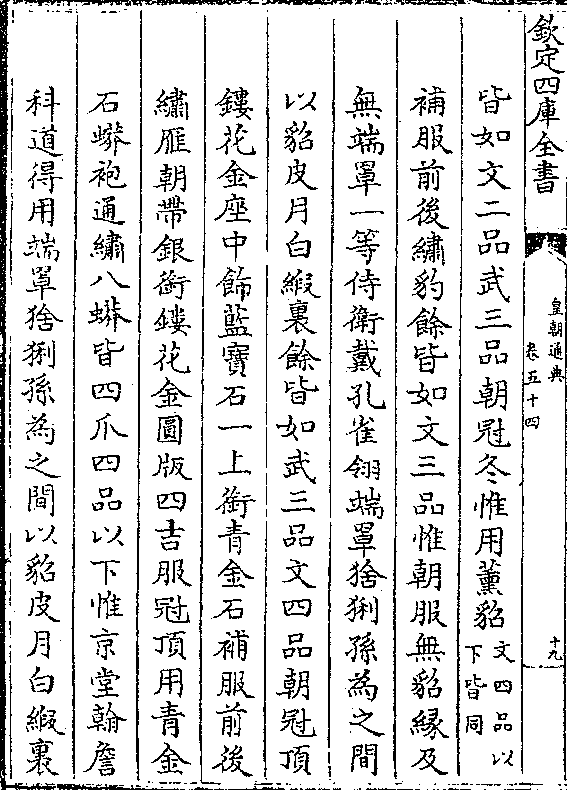 欽定四庫全書
皇朝通典
卷五十四
十九
皆如文二品武三品朝冠冬惟用薰貂文四品以
下皆同
補服前後繡豹餘皆如文三品惟朝服無貂緣及
無端罩一等侍衛戴孔雀翎端罩猞猁孫為之間
以貂皮月白緞裏餘皆如武三品文四品朝冠頂
鏤花金座中飾藍寶石一上銜青金石補服前後
繡雁朝帶銀銜鏤花金圓版四吉服冠頂用青金
石蟒袍通繡八蟒皆四爪四品以下惟京堂翰詹
科道得用端罩猞猁孫為之間以貂皮月白緞裏